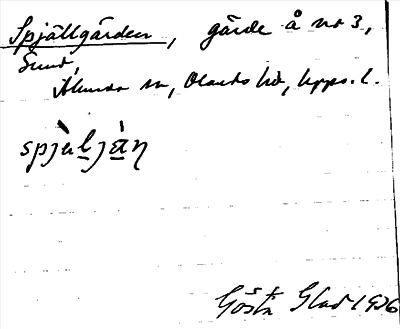 Spjällgärden, gärde å nr 3,
Sund,
Alunda sn, Olands hd, Upps. l.
spjàljä̀n
Gösta Glad 1936